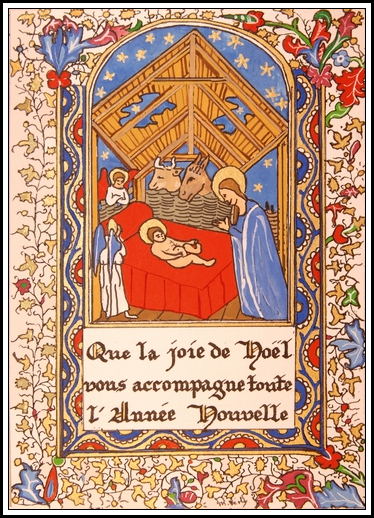 Que la joie de Noël
vous accompagne toute
l'Année Nouvelle